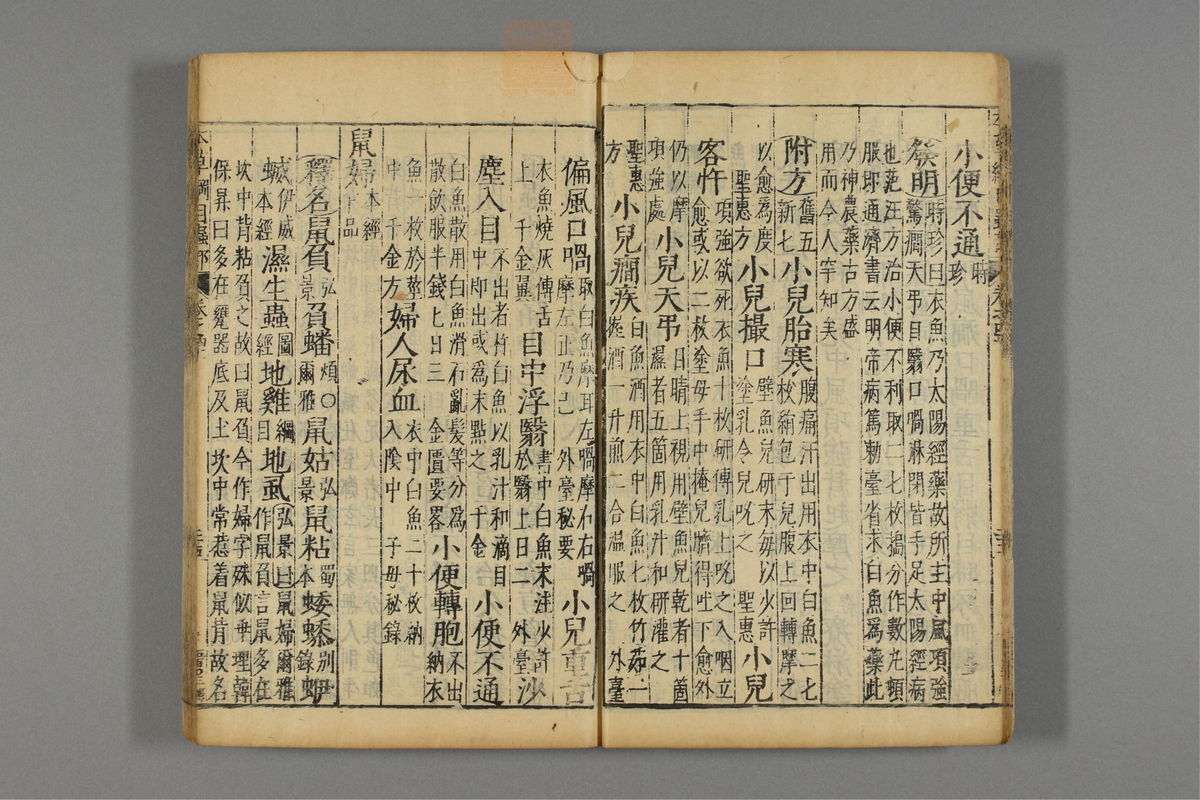 小便不通時珍
發明時珍曰衣魚乃太陽經藥故所主中風項強
驚癇天弔目翳口喎淋閉皆手足太陽經病
也范汪方治小便不利取二七枚搗分作數丸頓
服即通齊書云明帝病篤勅臺省求白魚為藥此
乃神農藥古方盛
用而今人罕知矣
附方舊五新七小兒胎寒腹痛汗出用衣中白魚二七枚絹包于兒腹上回轉摩之
以愈為度聖惠方小兒撮口壁魚兒研末每以少許塗乳令兒吮之 聖惠小兒
客忤項強欲死衣魚十枚研傅乳上吮之入咽立愈或以二枚塗母手中掩兒臍得吐下愈外
仍以摩項強處小兒天弔目睛上視用壁魚兒乾者十箇濕者五箇用乳汁和研灌之
聖惠方小兒癇疾白魚酒用衣中白魚七枚竹茹一握酒一升煎二合溫服之 外臺
偏風口喎取白魚摩耳左喎摩右右喎摩左正乃已 外臺秘要小兒重舌
衣魚燒灰傅舌上 千金翼目中浮翳書中白魚末注少許於翳上日二 外臺沙
塵入目不出者杵白魚以乳汁和滴目中即出或為末點之 千金小便不通
白魚散用白魚滑石亂髮等分為散飲服半錢匕日三 金匱要畧小便轉胞不出納衣
魚一枚於莖中 千金方婦人尿血衣中白魚二十枚納入陰中 子母秘錄
鼠婦本經下品
釋名鼠負弘景負蟠煩爾雅○鼠姑弘景鼠粘蜀本蜲別錄蛜
蝛伊威本經濕生蟲圖經地雞綱目地虱弘景曰鼠婦爾雅作鼠負言鼠多在
坎中背粘負之故曰鼠負今作婦字殊似乖理韓
保昇曰多在甕器底及土坎中常惹着鼠背故名
本草綱目蟲部